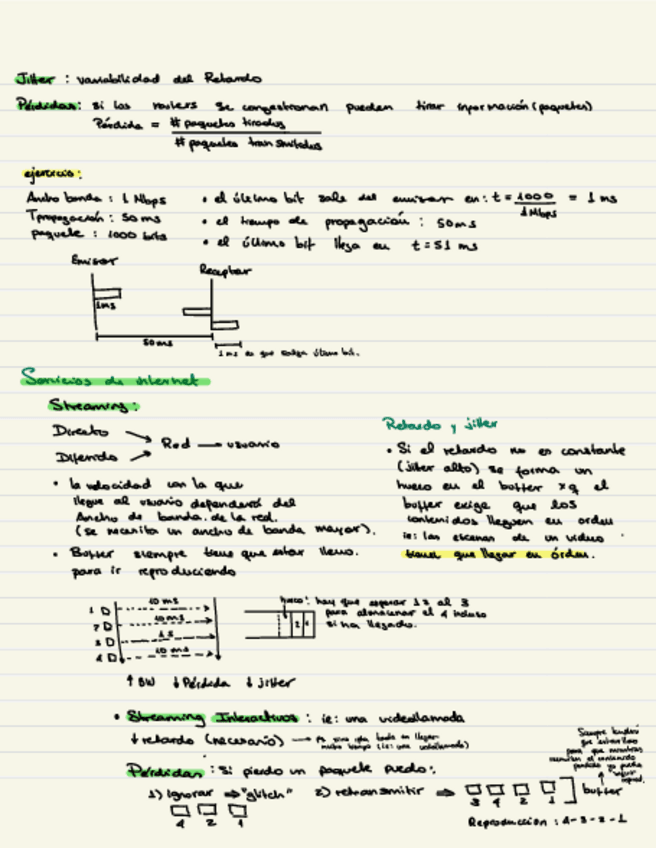 Jitter : variabilidad del Retardo
Pérdidas: si los routers se congestionan pueden tirar información (paquetes)
Pérdida = # paquetes tirados
# paquetes transmitidos
ejercicio:
Ancho banda : 1 Mbps
Tpropagación : 50 ms
paquete : 1000 bits
• el último bit sale del emisor en: t = 1000 / 1Mbps = 1 ms
• el tiempo de propagación : 50 ms
• el último bit llega en t = 51 ms
Emisor
Receptor
1ms
50 ms
1 ms es que salga último bit.
Servicios de internet
Streaming:
Directo
Diferido
Red → usuario
• la velocidad con la que
llegue al usuario dependerá del
Ancho de banda de la red.
(se necesita un ancho de banda mayor).
• Buffer siempre tiene que estar lleno.
para ir reproduciendo
Retardo y jitter
• Si el retardo no es constante
(jitter alto) se forma un
hueco en el buffer xq el
buffer exige que los
contenidos lleguen en orden
ie: las escenas de un video
tienen que llegar en órden.
1 10 ms
2 10 ms
3 1 s
4 10 ms
hueco: hay que esperar 1s al 3
para almacenar el 4 incluso
si ha llegado.
2 1
↑ BW ↓ Pérdida ↓ jitter
• Streaming Interactivos : ie: una videollamada
↓ retardo (necesario)
(ie: una videollamada)
Pérdidas : Si pierdo un paquete puedo:
1) Ignorar ⇒ "glitch"
4 2 1
2) retransmitir ⇒
3 4 2 1
buffer
Siempre
Reproducción : 4-3-2-1